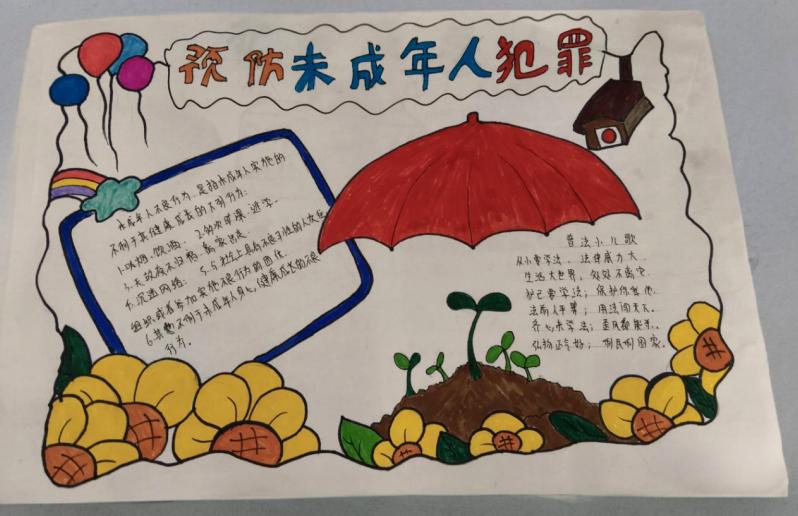 预防未成年人犯罪
未成年人不良行为，是指未成年人实施的
不利于其健康成长的不利行为：
1.吸烟、饮酒； 2.多次旷课、逃学；
3.无故夜不归宿、离家出走；
4.沉迷网络； 5.与社会上具有不良习性的人交往
组织或者参加实施不良行为的团伙
6.其他不利于未成年人身心健康成长的不良
行为。
普法小儿歌
从小要学法，法律威力大
生活大世界，处处不离它
法网
用法
弘扬正气好； 利民利国家。